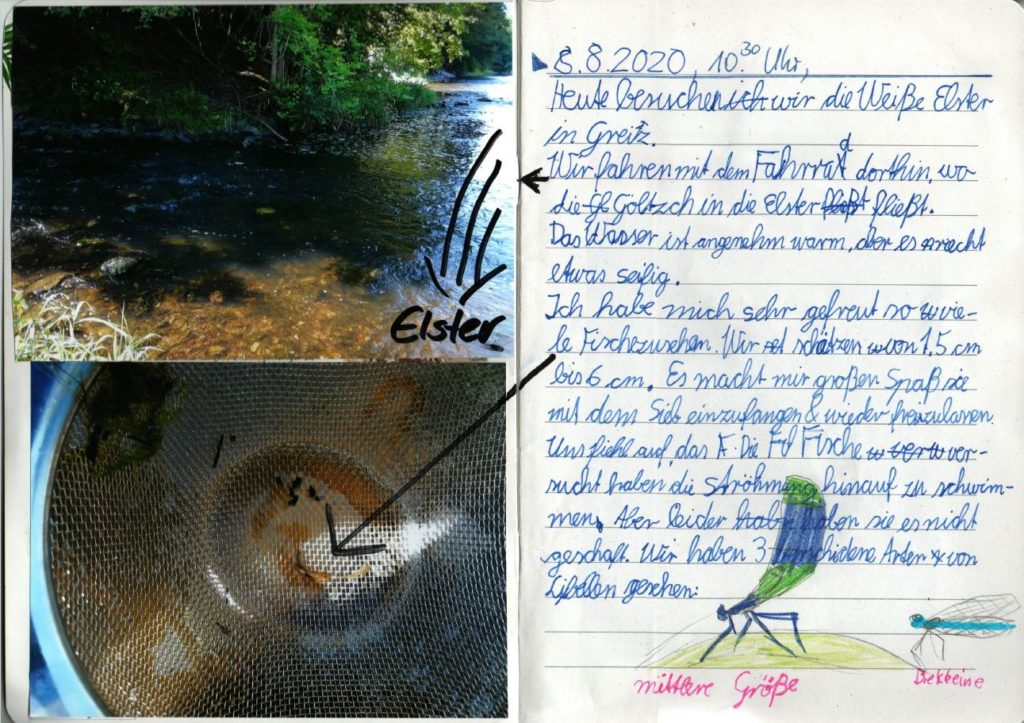 Elster
8.8.2020, 10.30 Uhr,
Heute besuchen ich wir die Weiße Elster
in Greiz.
Wir fahren mit dem Fahrrad dorthin, wo
die Göltzch in die Elster fließt fließt.
Das Wasser ist angenehm warm, aber es riecht
etwas seifig.
Ich habe mich sehr gefreut so vie-
le Fische zu sehen. Wir schätzen von 1,5 cm
bis 6 cm. Es macht mir großen Spaß sie
mit dem Sieb einzufangen & wieder freizulassen.
Uns fiehl auf, das F. Die Fd Fische ver-
sucht haben die Ströhmung hinauf zu schwim-
men. Aber leider habn haben sie es nicht
geschaft. Wir haben 3 verschidene Arten von
Libellen gesehen:
mittlere Größe
Diekbeine